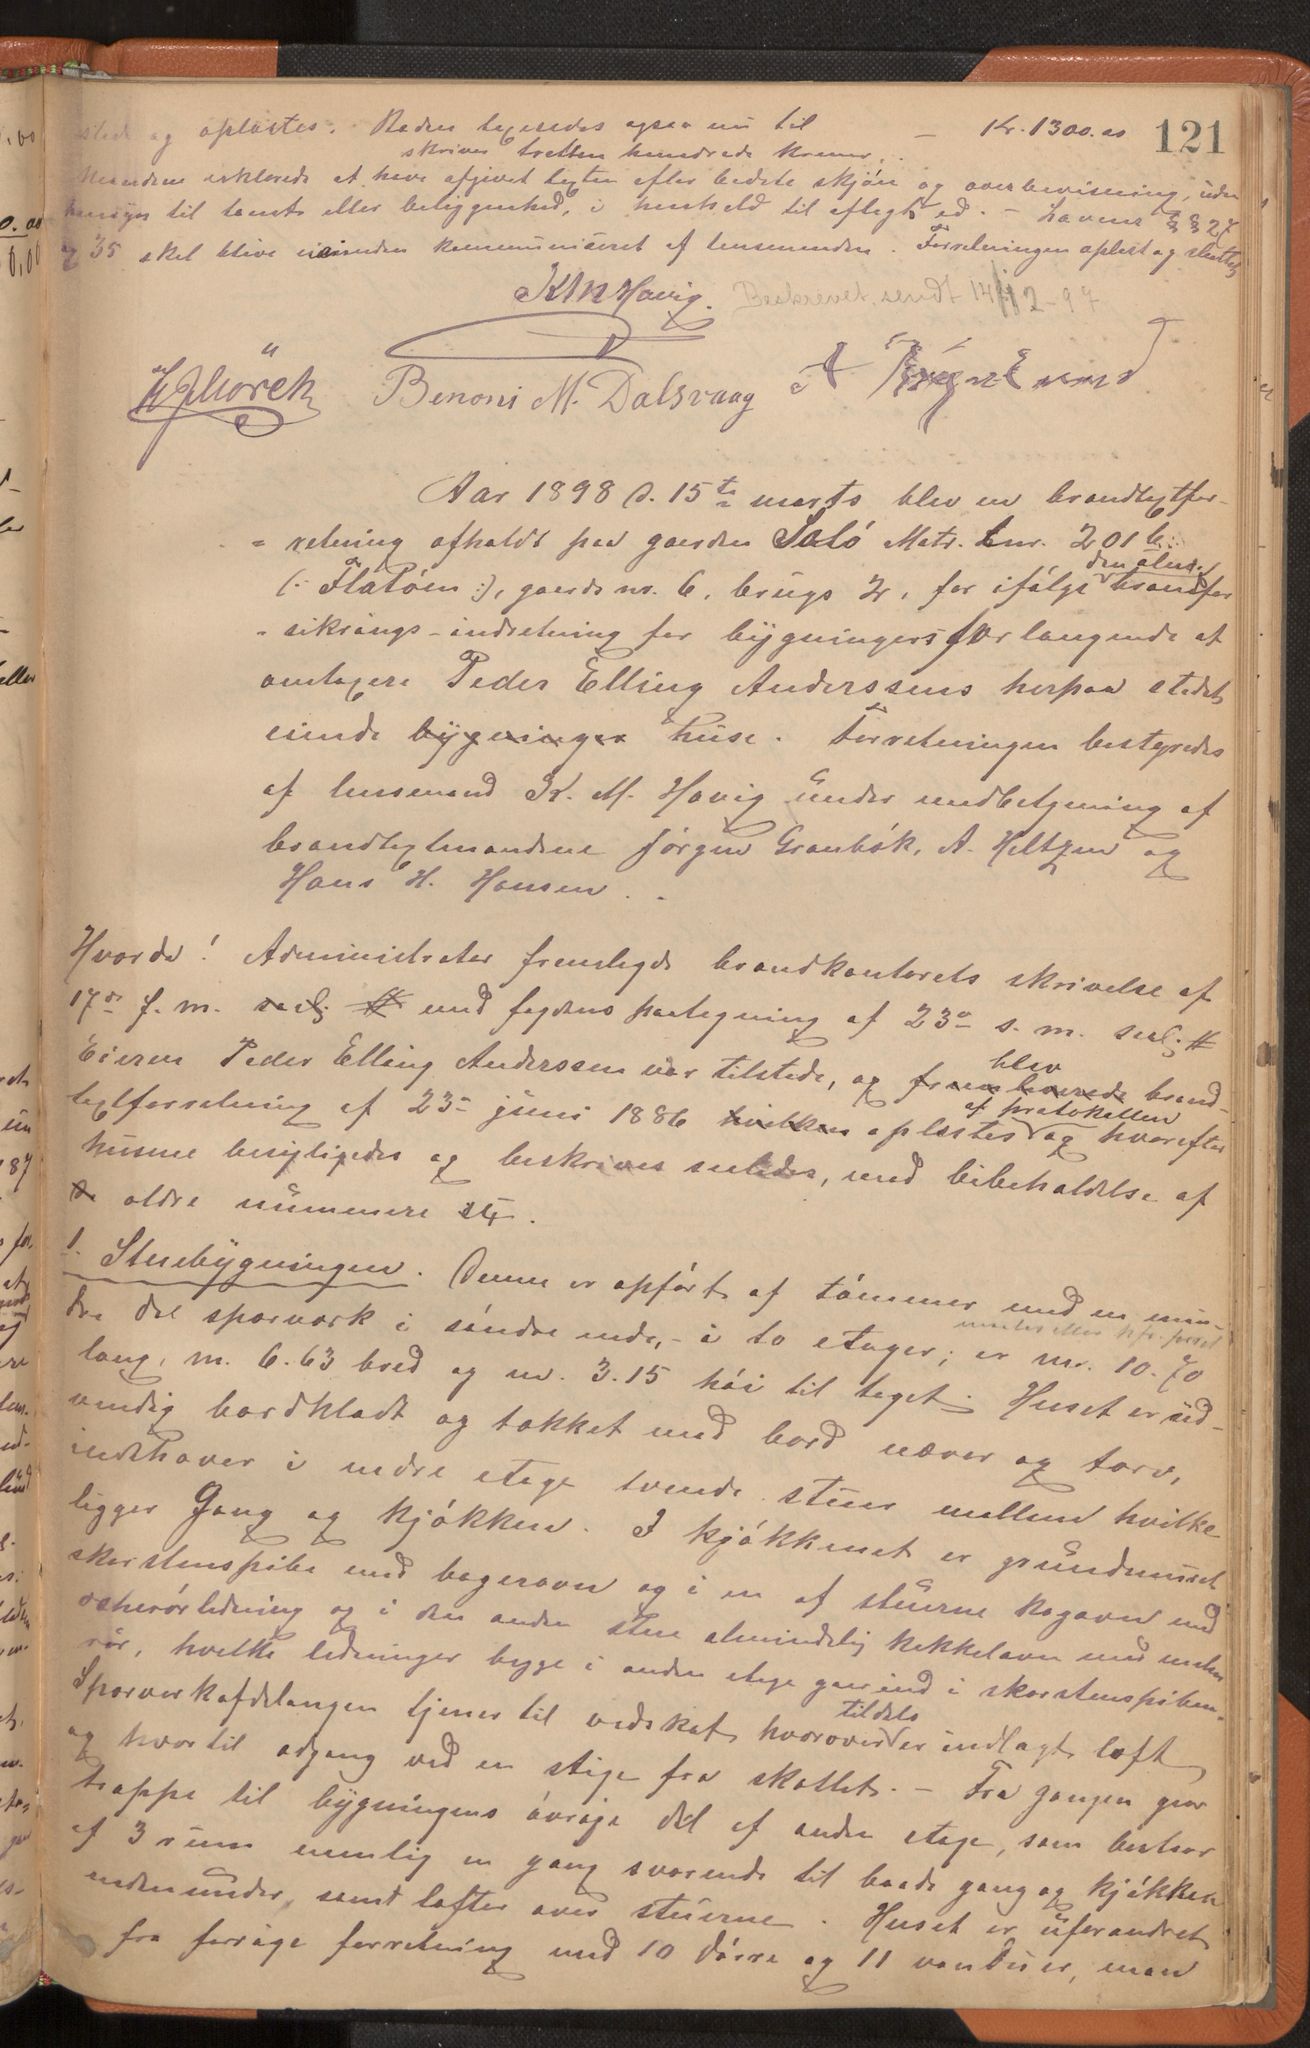 sted og oplæstes. Boden taxeredes ogsaa nu til — Kr. 1300.00 121
skriver tretten hundrede kroner.
Mændene erklærede at have afgivet taxten efter bedste skjøn og overbevisning, uden
hensyn til tomt eller beliggenhed, i henhold til aflagt ed. – Lovens §§ 27
og 35 skal blive eierinden kommuniceret af lensmanden. Forretningen oplæst og sluttet
K M Havig. Beskrevet, sendt 14/12-97
Benoni M. Dalsvaag
Aar 1898 d. 15te marts blev en brandtaxtfor-
-retning afholdt paa gaarden Salö Matr. Lnr. 201 b
(: Flatöen :), gaards nr. 6, brugs 2, for ifölge den alm. brandfor
-sikrings-indretning for bygningers forlangende at
omtaxere Peder Elling Anderssens herpaa stedet
eiende bygninger huse. Forretningen bestyredes
af lensmand K. M. Havig under medbetjening af
brandtaxtmændene Jörgen Grønbök, A. Heltzen og
Hans H. Hansen.
Hvorda! Administrator fremlagde brandkontorets skrivelse af
17de f. m. saal. # med fogdens paategning af 23de s. m. saal. #
Eieren Peder Elling Anderssen var tilstede, og fremleverede blev brand-
taxtforretning af 23de juni 1886 hvilken oplæstes af protokollen og hvorefter
husene besigtigedes og beskrives saaledes, med bibeholdelse af
ældre nummere
1. Stuebygningen. Denne er opfört af tömmer med en min-
dre del sporværk i söndre ende, – i to etager; er m. 10.70
lang, m. 6.63 bred og m. 3.15 höi til taget. Huset er ud-
vendig bordklædt og tækket med bord næver og torv,
indehaver i nedre etage tvende stuer mellem hvilke
ligger Gang og kjökken. I kjökkenet er grundmuret
skorstenspibe med bagerovn og i en af stuerne kogovn med
rörledning og i den anden stue almindelig kakkelovn med
rör, hvilke ledninger begge i anden etage gaar ind i skorstenspiben.
Sporverkafdelangen tjener til vedskot, hvorover tildels er indlagt loft
og hvortil adgang ved en stige fra skottet. – Fra gangen gaar
trappe til bygningens övrige del af anden etage, som bestaar
af 3 rum nemlig en gang svarende til baade gang og kjökken
nedenunder, samt lofter over stuerne. Huset er uforandret
fra forrige forretning med 10 dörre og 11 vinduer, men